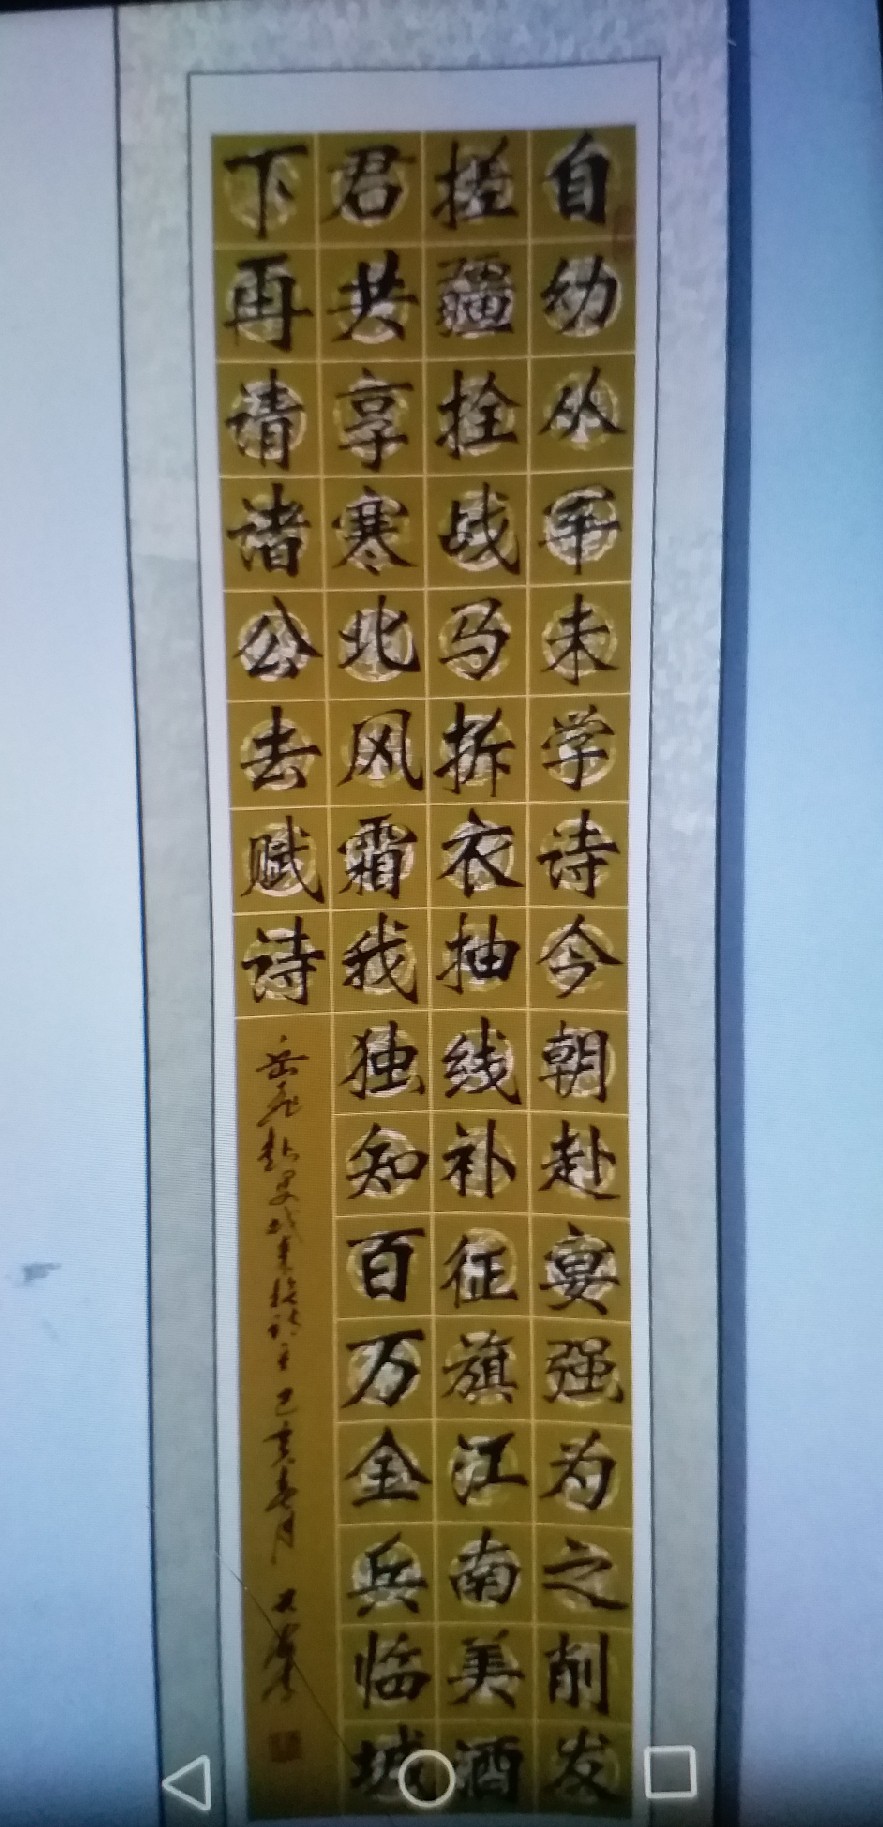 自幼从军未学诗今朝赴宴强为之削发
搓疆拴战马拆衣抽线补征旗江南美酒
君共享寒北风霜我独知百万金兵临城
下再请诸公去赋诗
岳飞赴 己亥春月